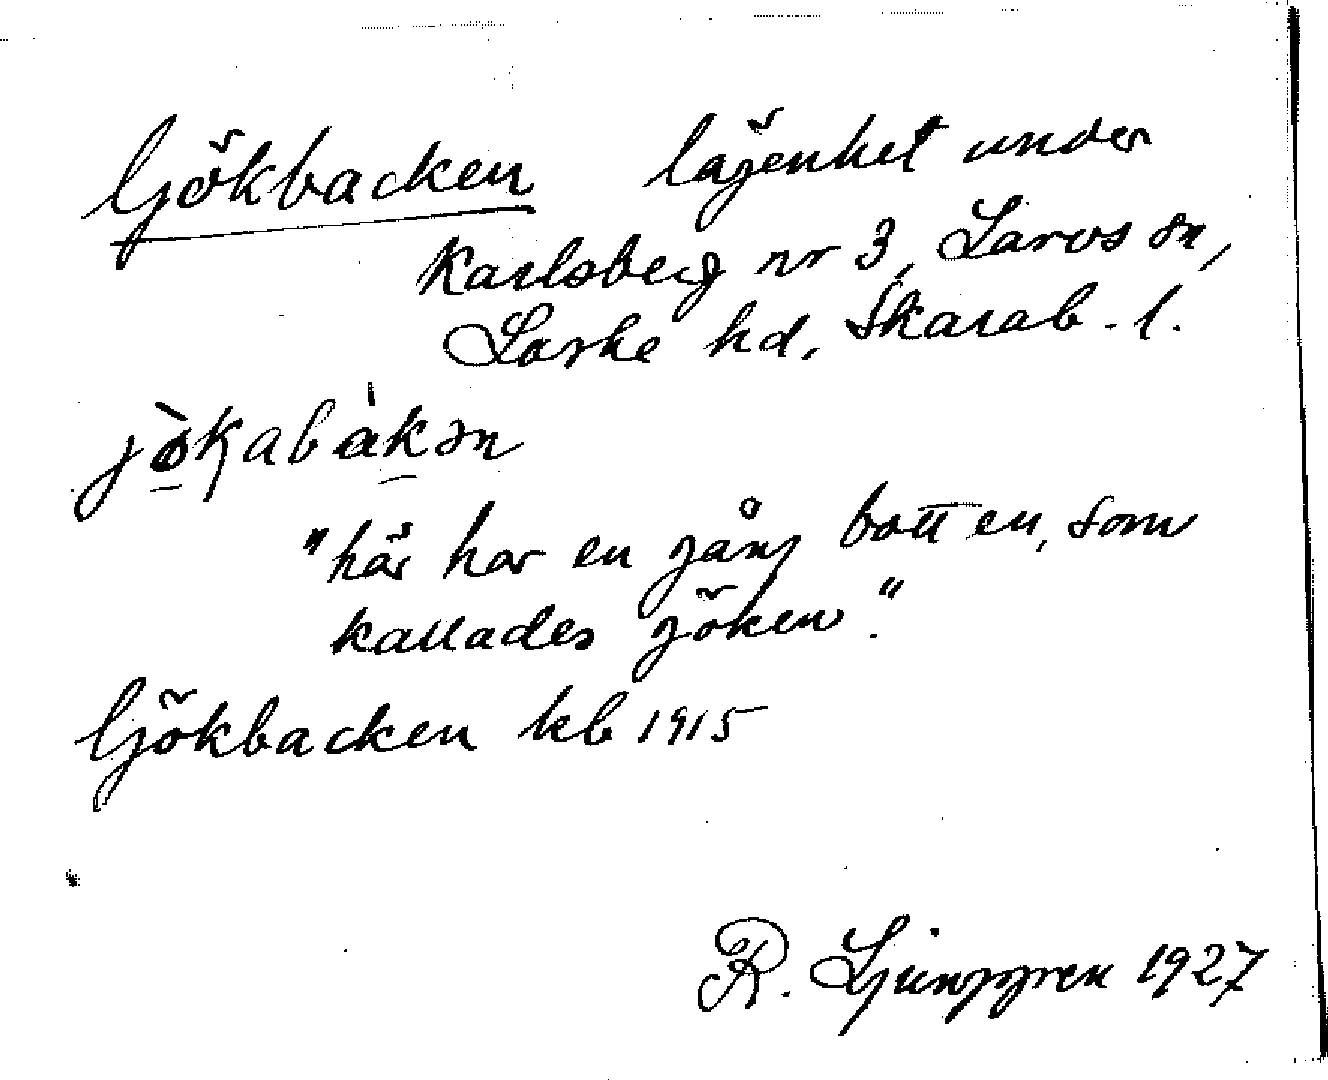 Gjökbacken lägenhet under
Karlsberg nr 3, Larvs sn,
Laske hd, Skarab. l.
jö̀kabàkən
"här har en gång bott en, som
kallades jöken."
Gjökbacken kb 1915
R. Ljunggren 1927